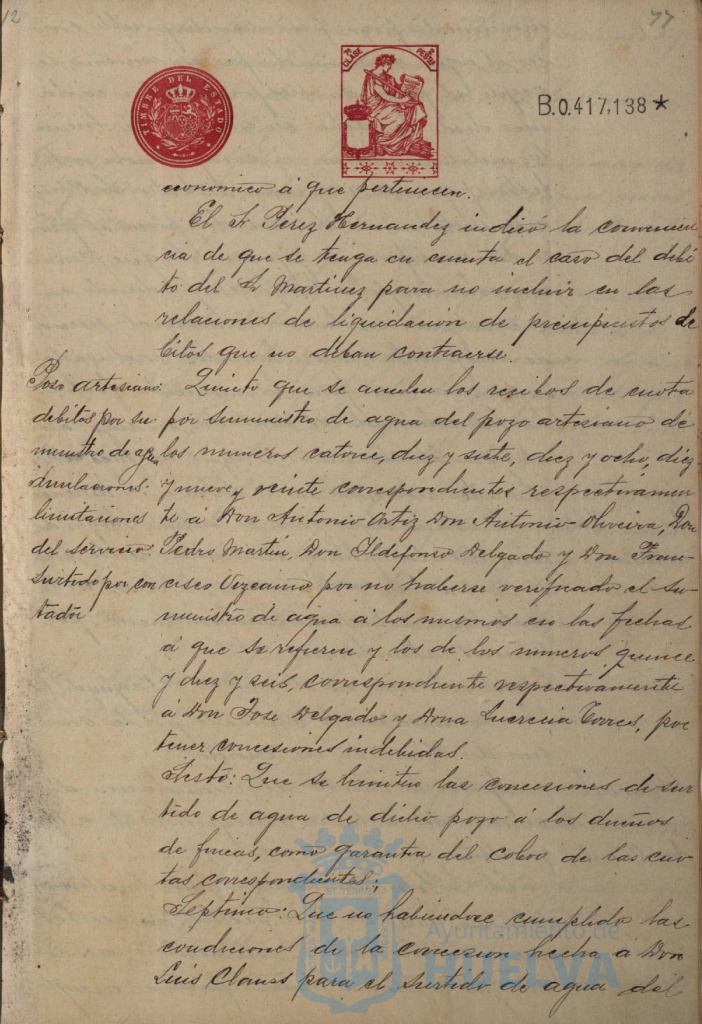 12
77
TIMBRE DEL ESTADO
CLASE
PESETA
B.0.417,138 *
economico á que pertenecen.
El Sr Perez Hernandez indicó la convenien
cia de que se tenga en cuenta el caso del debi
to del Sr Martinez para no incluir en las
relaciones de liquidacion de presupuestos de
bitos que no deban contraerse.
Poso artesiano:
debitos por su
ministro de agua
limitaciones
del servicio
surtido por con
tador
Quinto que se anulen los recibos de cuota
por suministro de agua del pozo artesiano de
los numeros catorce, diez y siete, diez y ocho, diez
y nueve y veinte correspondientes respectivamen
te á Don Antonio Ortiz Don Antonio Oliveira, Don
Pedro Martin, Don Ildefonso Delgado y Don Fran-
cisco Vizcaino por no haberse verificado el su-
ministro de agua á los mismos en las fechas
á que se refieren y los de los numeros quince
y diez y seis, correspondiente respectivamente
á Don Jose Delgado y Dona Lucrecia Torres, por
tener concesiones indebidas.
Sesto: Que se limiten las concesiones de sur
tido de agua de dicho pozo á los dueños
de fincas, como garantia del cobro de las cuo
tas correspondientes;
Septimo: Que no habiendose cumplido las
condiciones de la concesion hecha á Don
Luis Clauss para el surtido de agua del
Ayuntamiento de
HUELVA